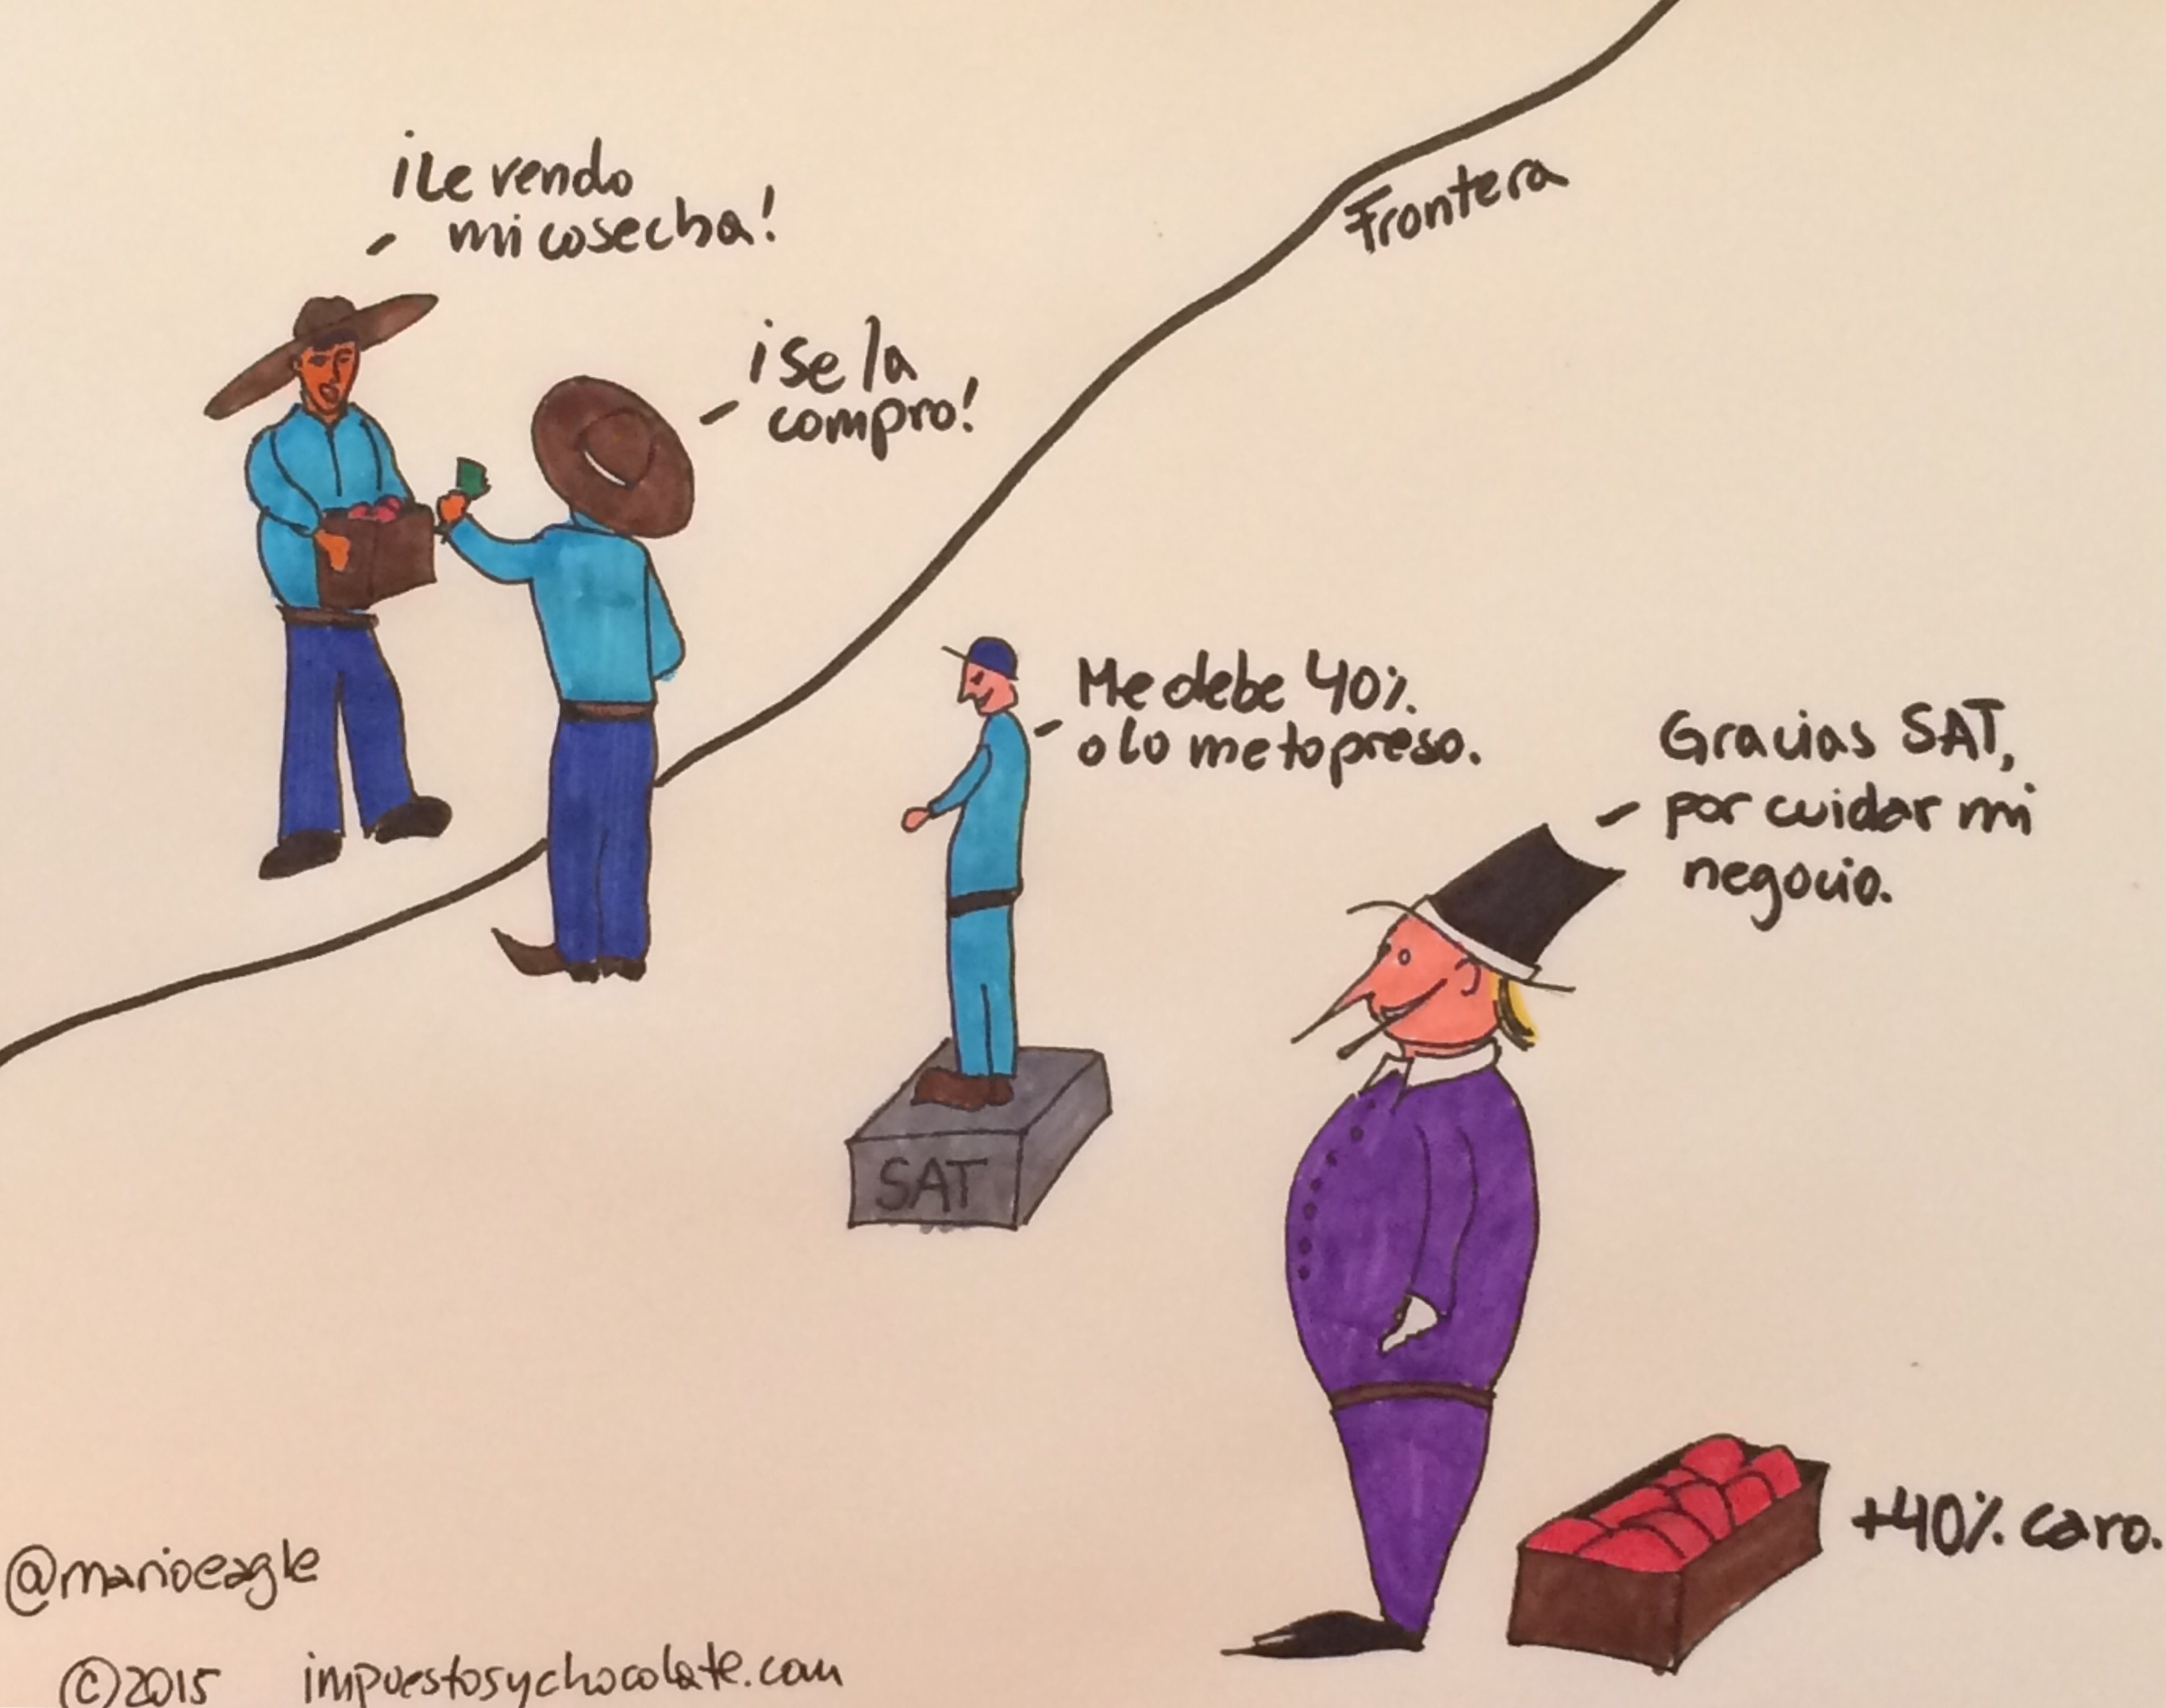 ¡Le vendo
mi cosecha!
¡Se la
compro!
Frontera
Me debe 40%
o lo meto preso.
Gracias SAT,
por cuidar mi
negocio.
SAT
+40% caro.
@marioeagle
©2015 impuestosychocolate.com